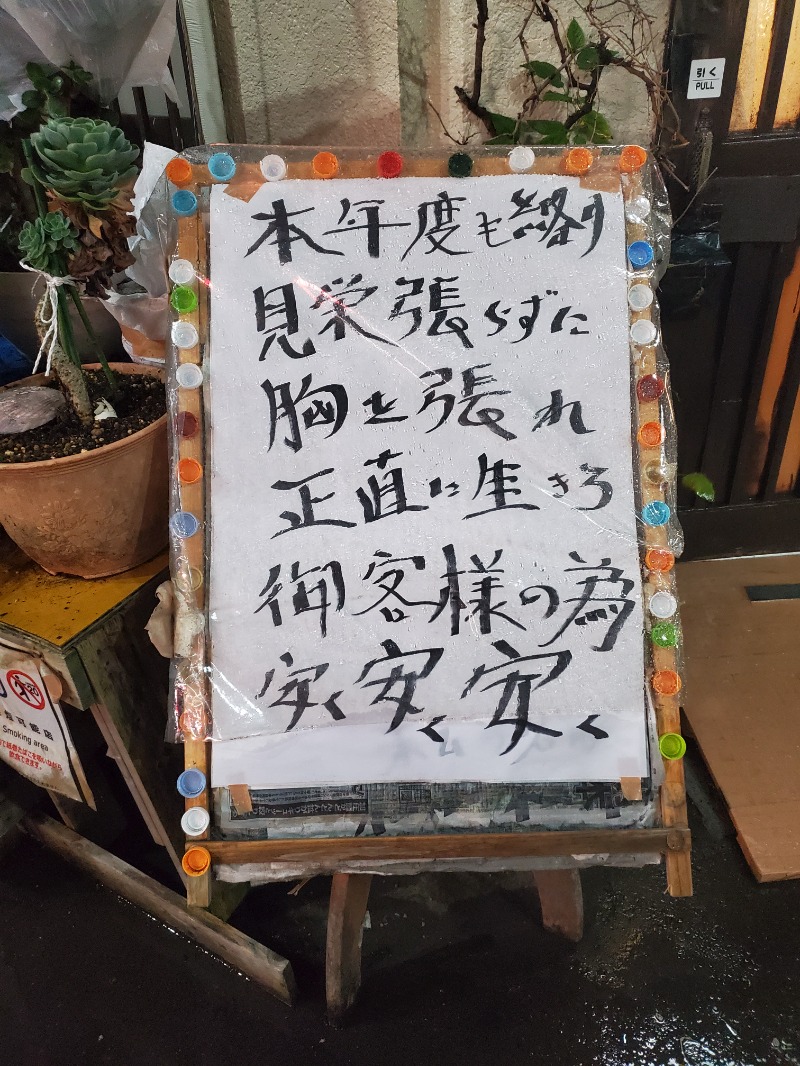 引く
PULL
本年度も終り
見栄張らずに
胸を張れ
正直に生きろ
御客様の為
安く安く安く
20
可能店
Smoking area
飲食できます。